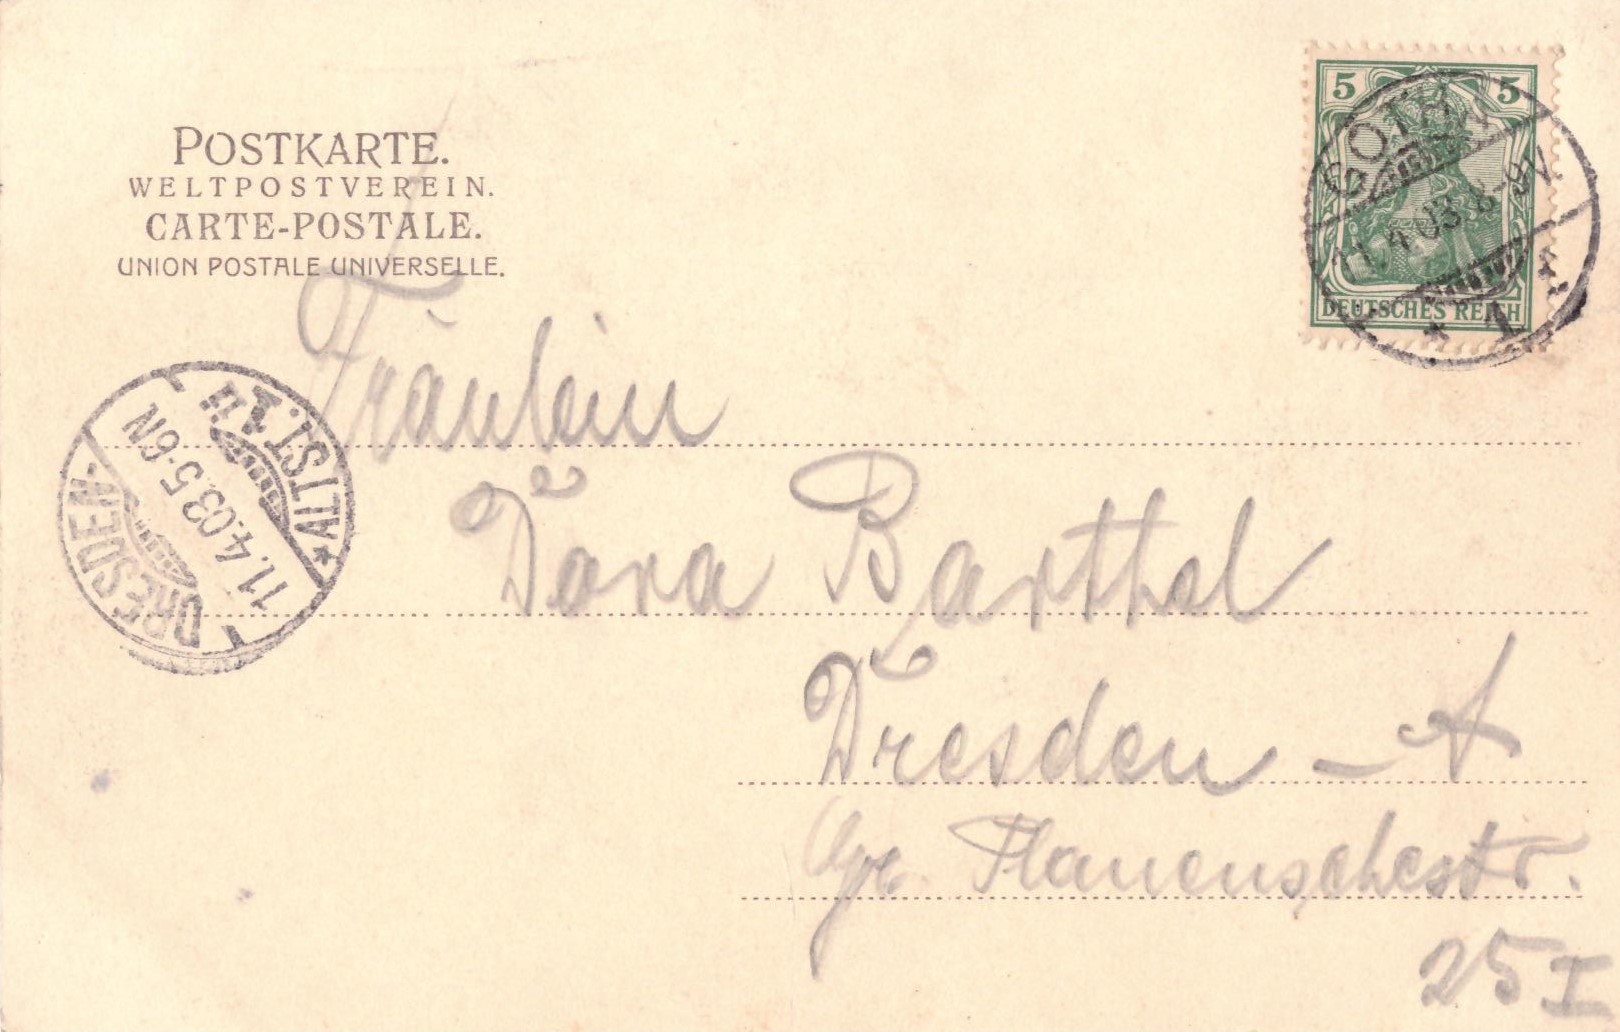 POSTKARTE.
WELTPOSTVEREIN.
CARTE-POSTALE.
UNION POSTALE UNIVERSELLE.
5 5
DEUTSCHES REICH
GOTHA
11.4.03.8-9V.
* 1 *
DRESDEN-ALTST.1
11.4.03.5-6N
Fräulein
Dora Barthel
Dresden - A
Gr. Plauenschestr.
25 I